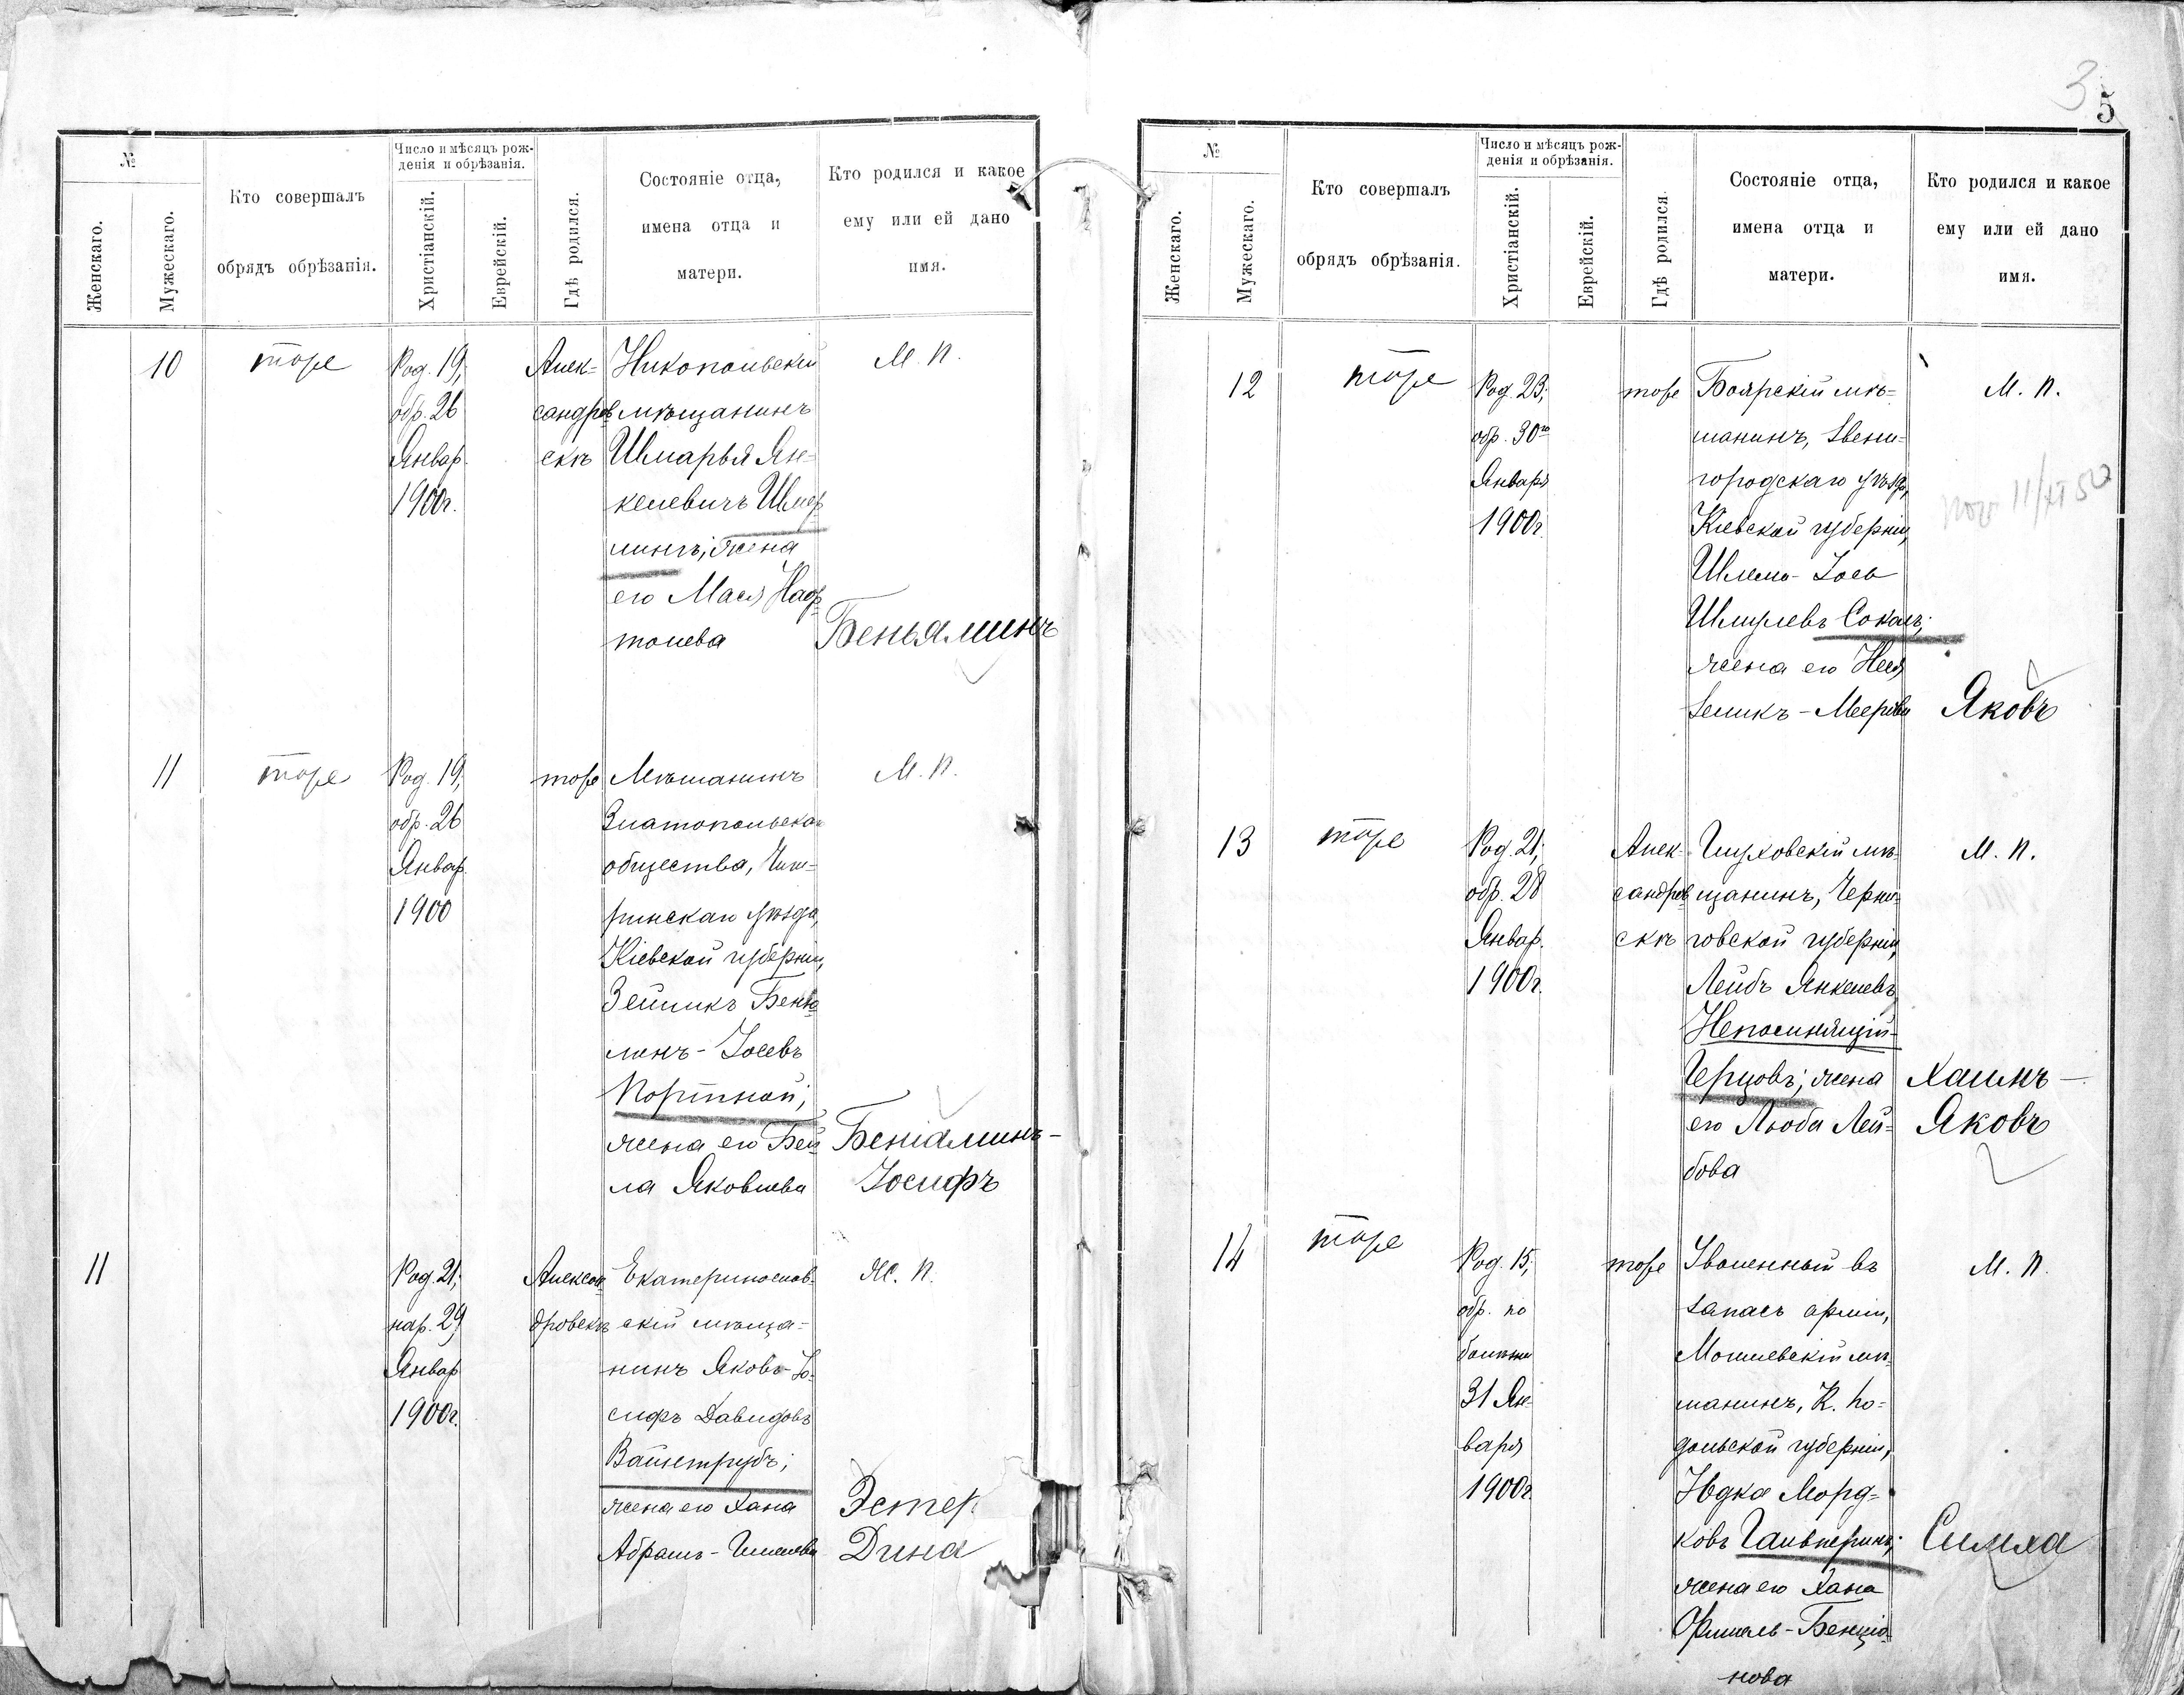 №
Женскаго.
Мужескаго.
Кто совершалъ
обрядъ обрѣзанія.
Число и мѣсяцъ рож-
денія и обрѣзанія.
Христіанскій.
Еврейскій.
Гдѣ родился.
Состояніе отца,
имена отца и
матери.
Кто родился и какое
ему или ей дано
имя.
10
тоже
Род. 19,
обр. 26
Январ.
1900г.
Алек-
сандров
скъ
Никопольскій
мѣщанинъ
Шмарья Ян-
келевичъ
жена
его Мася Наф-
толева
М. п.
Беньяминъ
11
тоже
Род. 19,
обр. 26
Январ.
1900
тоже
Мѣщанинъ
Златопольска
общества, Чиг-
ринскаго уѣзда,
Кіевской губерніи,
Зейликъ Беню
минъ-Іосевъ
Портной;
жена его Бей-
ла Яковлева
М. п.
Беніаминъ-
Іосифъ
11
Род. 21,
нар. 29
Январ
1900г.
Алексан
дровскъ
Екатеринослав-
скій мѣща-
нинъ Яковъ-Іо-
сифъ Давидовъ
Вайнтрубъ;
жена его Хана
Абрамъ-
Ж. п.
Эстер.
Дина
3
5
№
Женскаго.
Мужескаго.
Кто совершалъ
обрядъ обрѣзанія.
Число и мѣсяцъ рож-
денія и обрѣзанія.
Христіанскій.
Еврейскій.
Гдѣ родился
Состояніе отца,
имена отца и
матери.
Кто родился и какое
ему или ей дано
имя.
12
тоже
Род. 23;
обр. 30го
Января
1900г.
тоже
Боярскій мѣ-
щанинъ, Звени-
городскаго уѣзда,
Кіевской губерніи,
Шлемо-Іось
Шмулевъ Соколъ;
жена его Неся
Зеликъ-Меерова
М. п.
11/XI 50
Яковъ
13
тоже
Род. 21;
обр. 28
Январ.
1900г.
Алек-
сандров
скъ
Глуховскій мѣ-
щанинъ, Черни-
говской губерніи,
Лейбъ Янкелевъ
Непомнящій-
Герцовъ; жена
его Люба Лей-
бова
М. п.
Хаимъ-
Яковъ
14
тоже
Род. 15;
обр. по
болѣзни
31 Ян-
варя
1900г.
тоже
Уволенный въ
запасъ арміи,
Могилевскій мѣ-
щанинъ, К. По-
дольской губерніи,
Юдка Морд-
ковъ Гальперинъ;
жена его Хана
Бенціо-
нова
М. п.
Симха